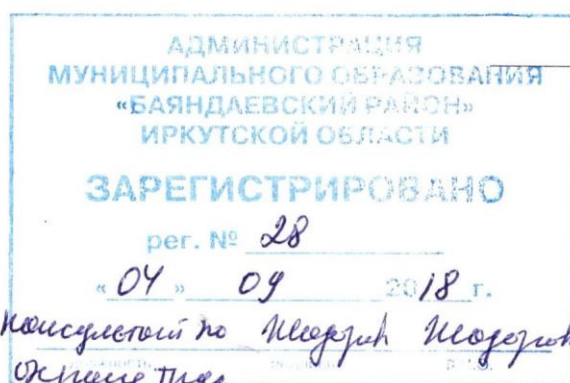 АДМИНИСТРАЦИЯ
МУНИЦИПАЛЬНОГО ОБРАЗОВАНИЯ
«БАЯНДАЕВСКИЙ РАЙОН»
ИРКУТСКОЙ ОБЛАСТИ
ЗАРЕГИСТРИРОВАНО
рег. № 28
«04» 09 2018 г.
консультант по
охране труда